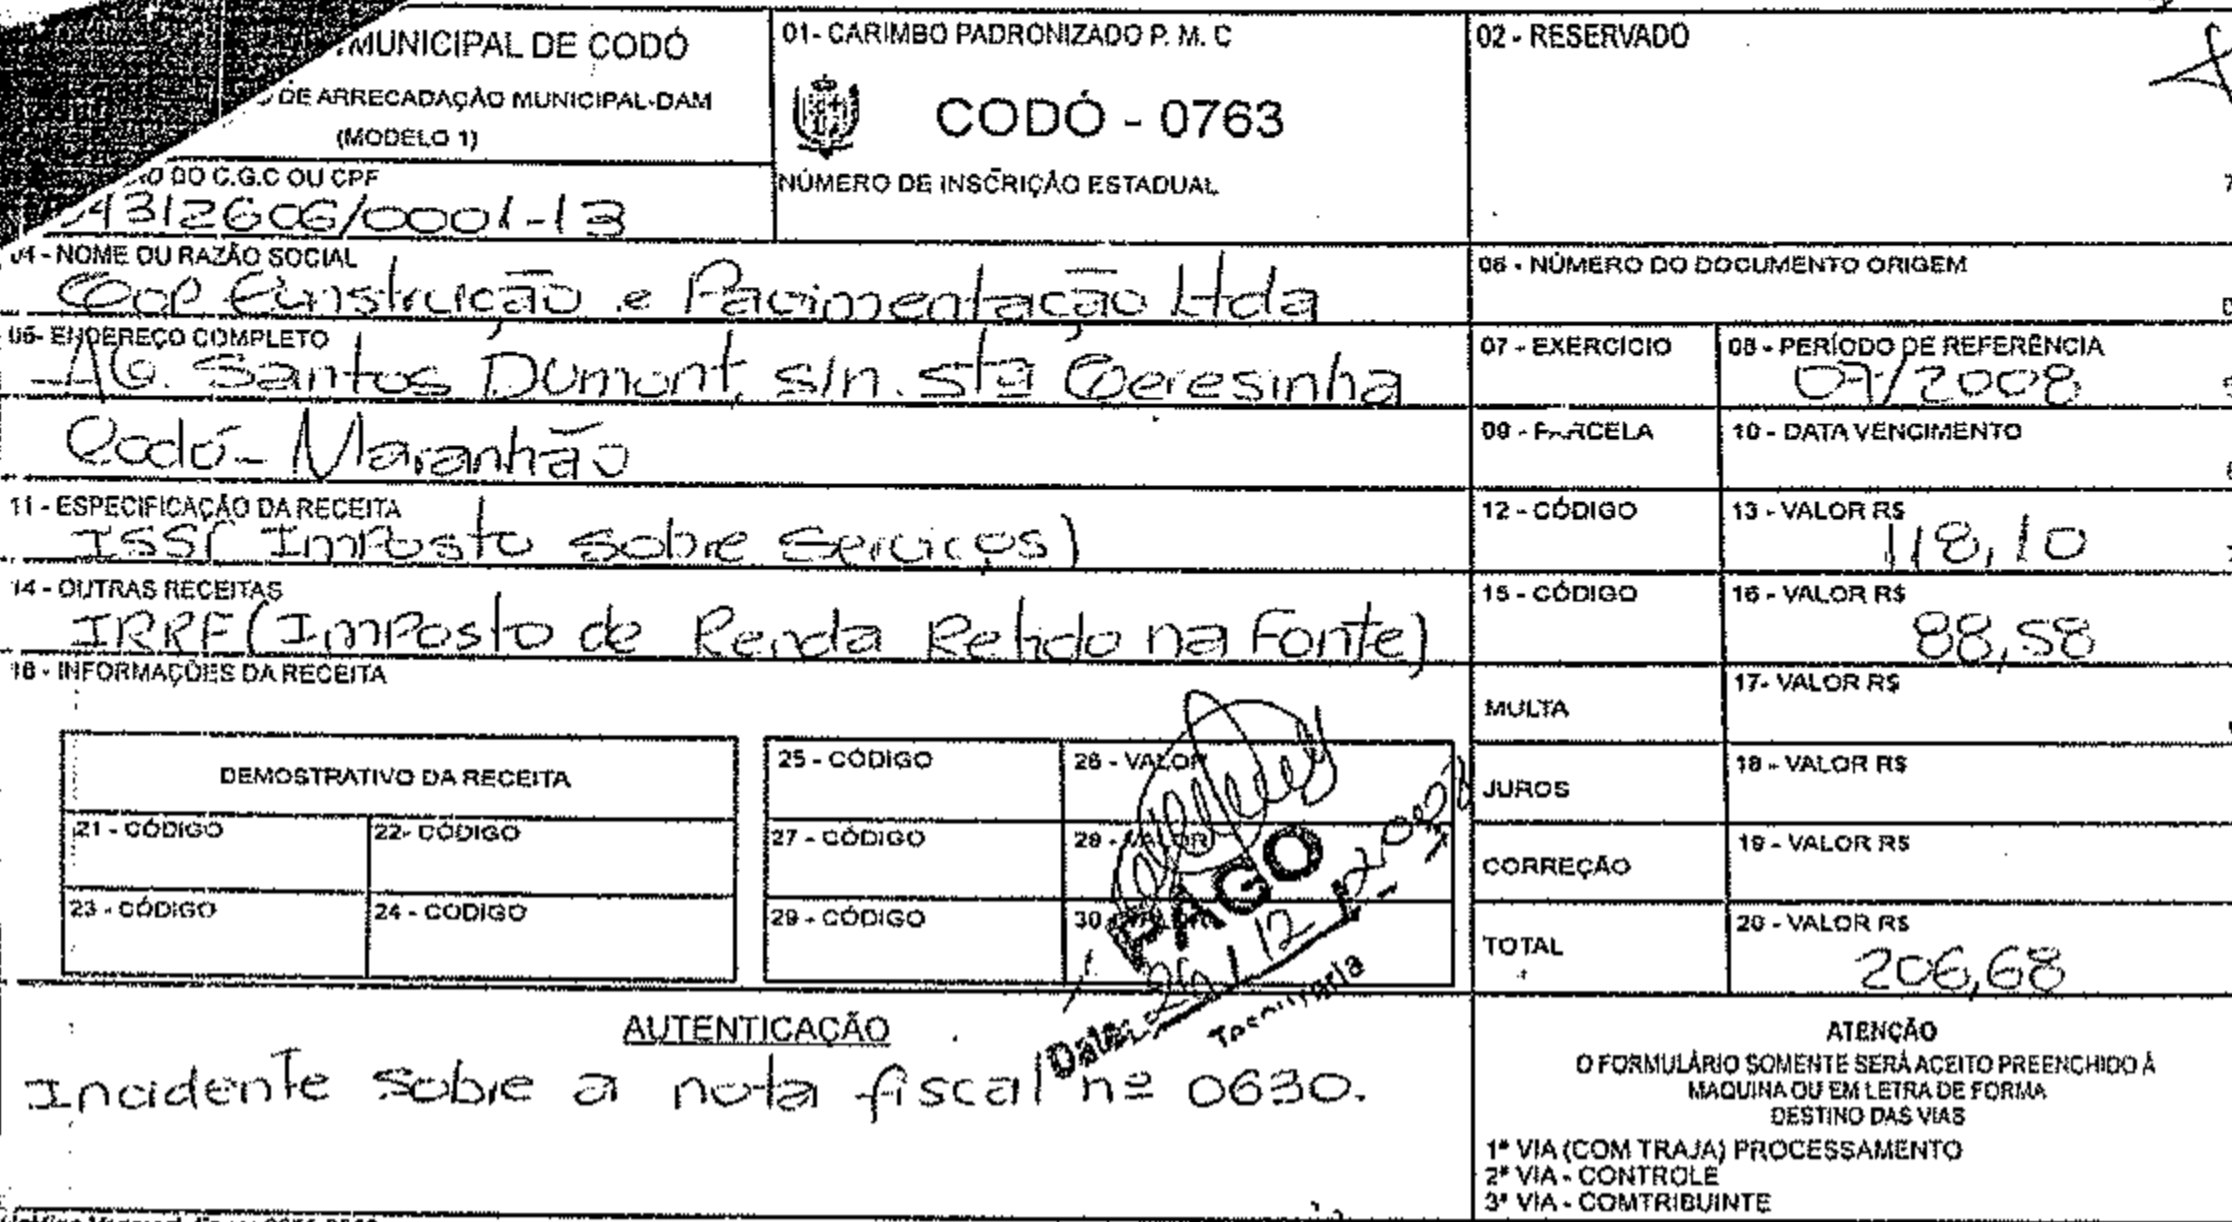 MUNICIPAL DE CODÓ
DE ARRECADAÇÃO MUNICIPAL-DAM
(MODELO 1)
01- CARIMBO PADRONIZADO P. M. C
CODÓ - 0763
NÚMERO DE INSCRIÇÃO ESTADUAL
02 - RESERVADO
DO C.G.C OU CPF
4312606/0001-13
04 - NOME OU RAZÃO SOCIAL
Construção e Pavimentação Ltda
06 - NÚMERO DO DOCUMENTO ORIGEM
05- ENDEREÇO COMPLETO
Av. Santos Dumont, s/n. Stª Teresinha
Codó - Maranhão
07 - EXERCÍCIO
08 - PERÍODO DE REFERÊNCIA
07/2008
09 - PARCELA
10 - DATA VENCIMENTO
11 - ESPECIFICAÇÃO DA RECEITA
ISS( Imposto sobre Serviços)
12 - CÓDIGO
13 - VALOR R$
118,10
14 - OUTRAS RECEITAS
IRRF (Imposto de Renda Retido na Fonte)
15 - CÓDIGO
16 - VALOR R$
88,58
16 - INFORMAÇÕES DA RECEITA
MULTA
17- VALOR R$
DEMOSTRATIVO DA RECEITA
25 - CÓDIGO
26 - VALOR
JUROS
18 - VALOR R$
21 - CÓDIGO
22- CÓDIGO
27 - CÓDIGO
28 - VALOR
CORREÇÃO
19 - VALOR R$
23 - CÓDIGO
24 - CODIGO
29 - CÓDIGO
30 - VALOR
TOTAL
20 - VALOR R$
206,68
PAGO
Data:
Tesouraria
AUTENTICAÇÃO
Incidente sobre a nota fiscal nº 0630.
ATENÇÃO
O FORMULÁRIO SOMENTE SERÁ ACEITO PREENCHIDO À
MAQUINA OU EM LETRA DE FORMA
DESTINO DAS VIAS
1ª VIA (COM TRAJA) PROCESSAMENTO
2ª VIA - CONTROLE
3ª VIA - COMTRIBUINTE